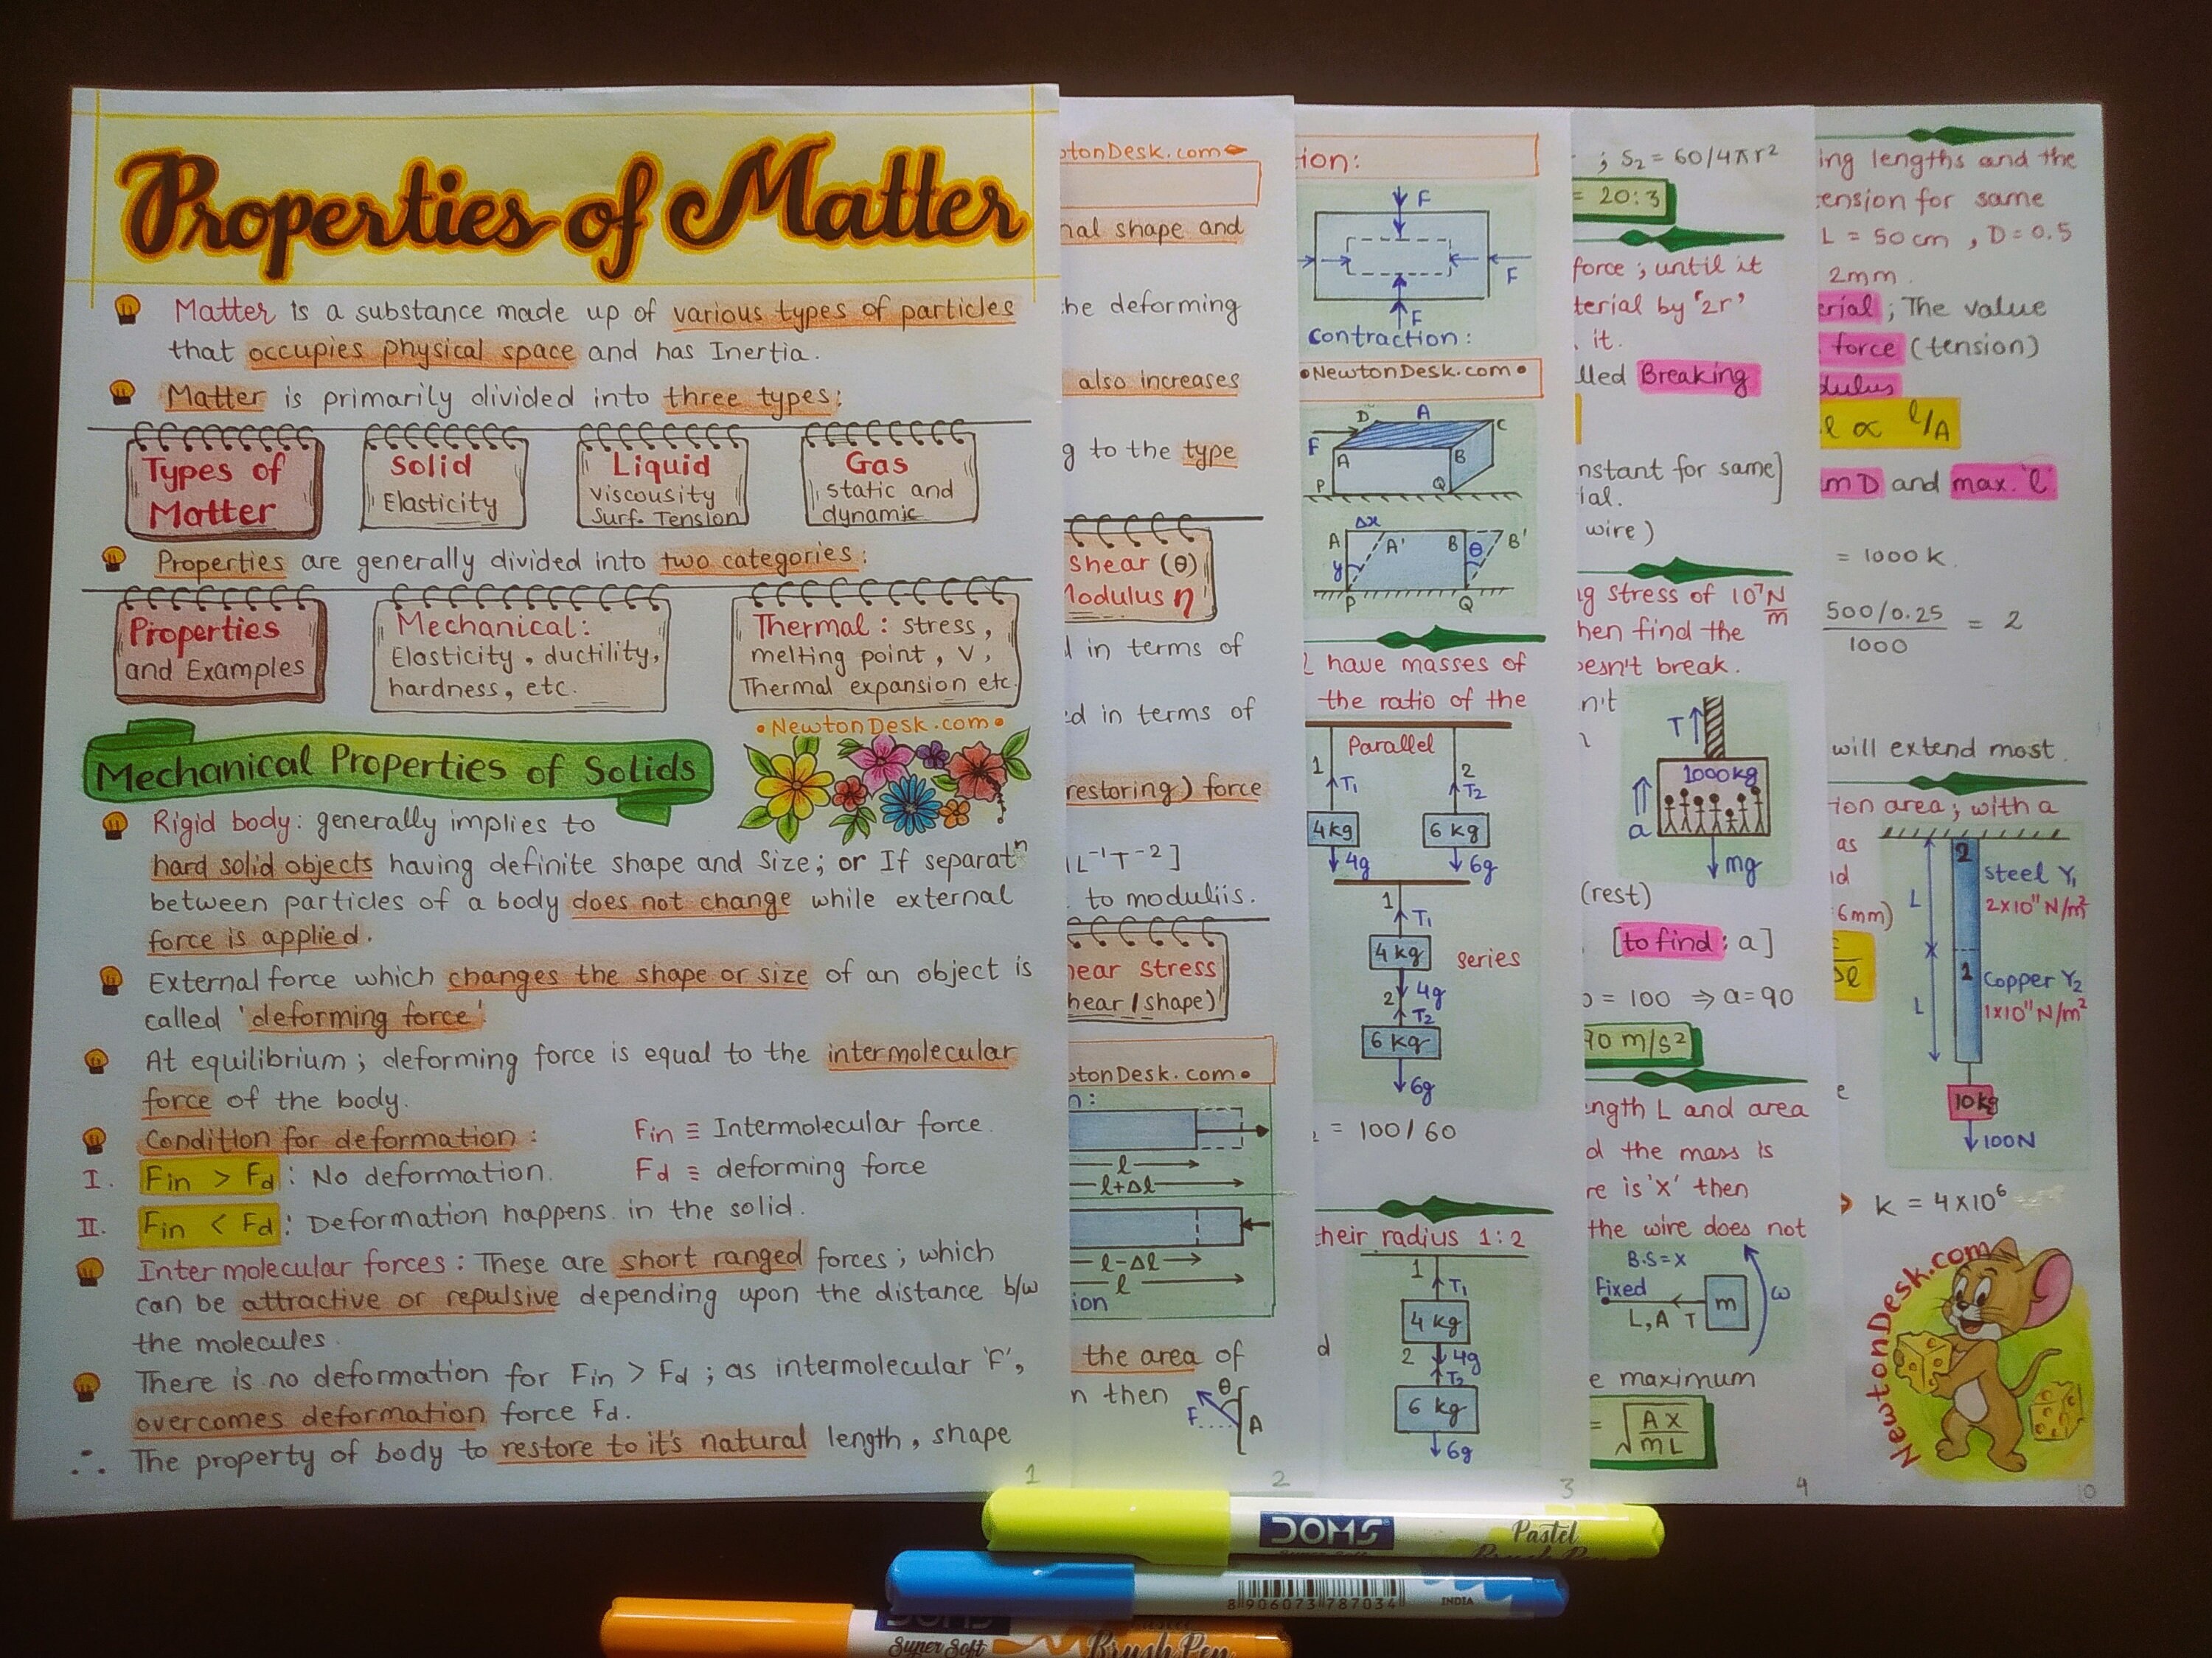 Properties of Matter
Matter is a substance made up of various types of particles
that occupies physical space and has Inertia.
Matter is primarily divided into three types:
Types of
Matter
Solid
Elasticity
Liquid
Viscousity
Surf. Tension
Gas
static and
dynamic
Properties are generally divided into two categories:
Properties
and Examples
Mechanical:
Elasticity, ductility,
hardness, etc.
Thermal: stress,
melting point, V,
Thermal expansion etc.
•NewtonDesk.com•
Mechanical Properties of Solids
Rigid body: generally implies to
hard solid objects having definite shape and size; or If separatⁿ
between particles of a body does not change while external
force is applied.
External force which changes the shape or size of an object is
called 'deforming force'
At equilibrium; deforming force is equal to the intermolecular
force of the body.
Condition for deformation:
Fin ≡ Intermolecular force.
I. Fin > Fd: No deformation.
Fd ≡ deforming force
II. Fin < Fd: Deformation happens in the solid.
Intermolecular forces: These are short ranged forces; which
can be attractive or repulsive depending upon the distance b/w
the molecules.
There is no deformation for Fin > Fd; as intermolecular 'F',
overcomes deformation force Fd.
∴ The property of body to restore to it's natural length, shape
1
tonDesk.com
nal shape and
he deforming
also increases
g to the type
Shear (θ)
Modulus η
in terms of
d in terms of
restoring) force
L⁻¹T⁻²]
to moduliis.
hear stress
hear/shape)
tonDesk.com•
n:
l
l+Δl
l-Δl
l
ion
the area of
n then
θ
F
A
2
ion:
F
F
F
contraction:
•NewtonDesk.com•
D A C
F
A B
P Q
Δx
A A' B θ B'
y
P Q
2 have masses of
the ratio of the
Parallel
1 2
T1 T2
4kg 6 kg
4g 6g
1
T1
4 kg series
4g
2
T2
6 kg
6g
= 100/60
their radius 1:2
1
T1
4 kg
d
2 4g
T2
6 kg
6g
3
; S2 = 60/4πr²
= 20:3
force; until it
terial by '2r'
it.
lled Breaking
nstant for same]
ial.
wire)
ng stress of 10⁷ N/m
hen find the
oesn't break.
n't
T
1000kg
a
mg
(rest)
[to find: a]
= 100 ⇒ a=90
90 m/s²
ength L and area
d the mass is
re is 'x' then
the wire does not
B.S=X
Fixed
m ω
L,A T
e maximum
= √AX/mL
4
ing lengths and the
tension for same
L = 50cm, D=0.5
2mm.
erial; The value
force (tension)
dulus
l ∝ l/A
m D and max. 'l'
= 1000 k
500/0.25 / 1000 = 2
will extend most.
ion area; with a
as
2
Steel Y1
2×10¹¹ N/m²
L
6mm)
1
Copper Y2
1×10¹¹ N/m²
L
10kg
100N
k = 4×10⁶
NewtonDesk.com
DOMS
Pastel
8 906073 787034
INDIA
DOMS
Super Soft
Brush Pen